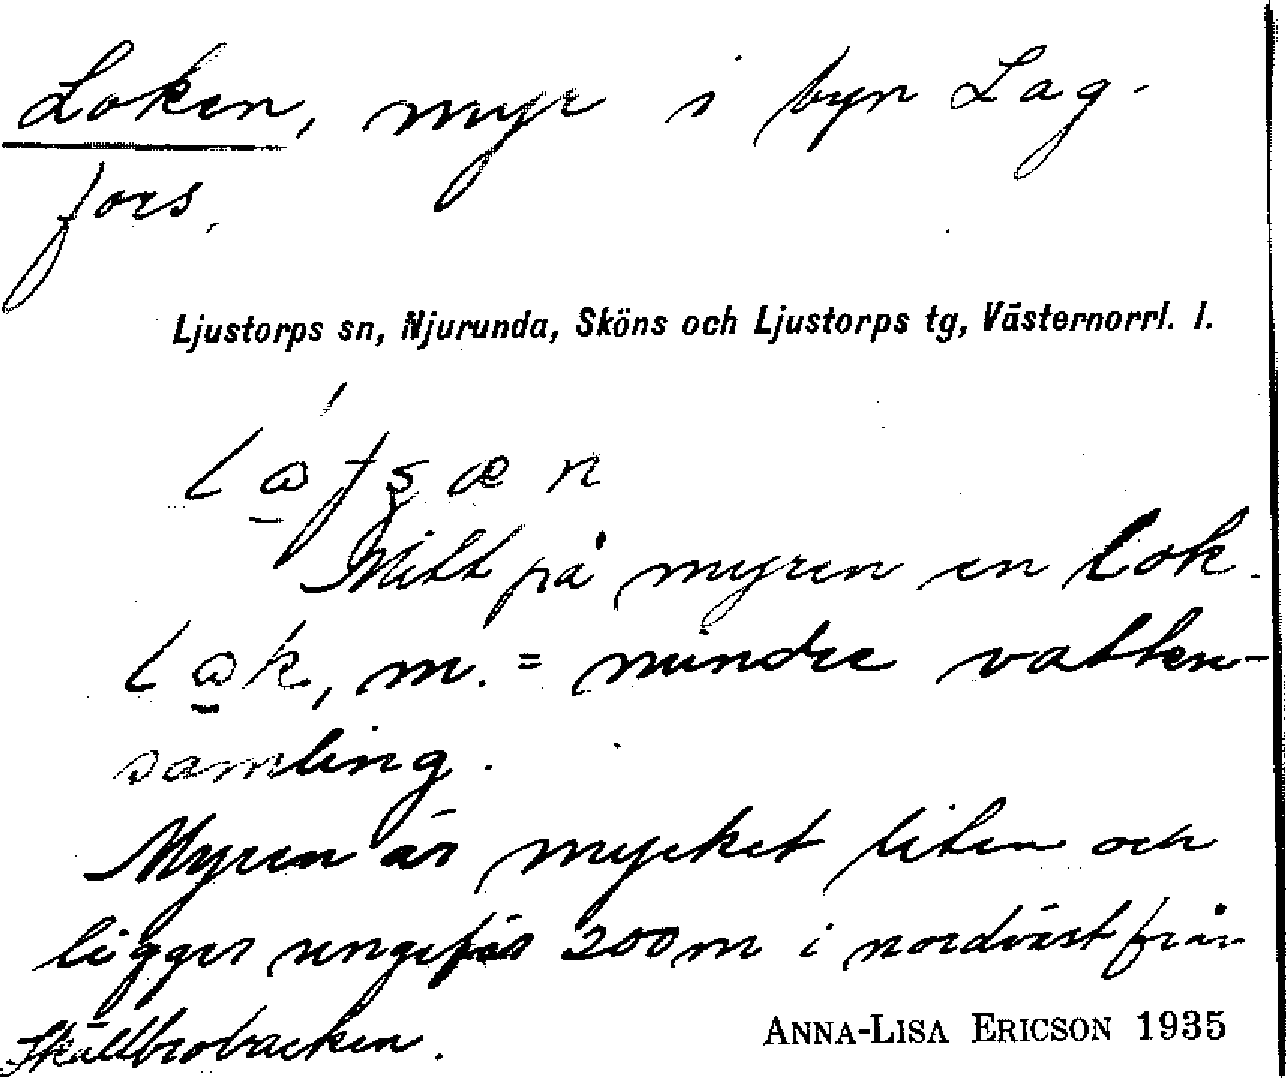 Loken, myr i byn Lag-
fors.
Ljustorps sn, Njurunda, Sköns och Ljustorps tg, Västernorrl. l.
Mitt på myren en lok.
lak, m. = mindre vatten-
samling.
Myren är mycket liten och
ligger ungefär 200 m i nordväst från
Skällbrobacken.
ANNA-LISA ERICSON 1935